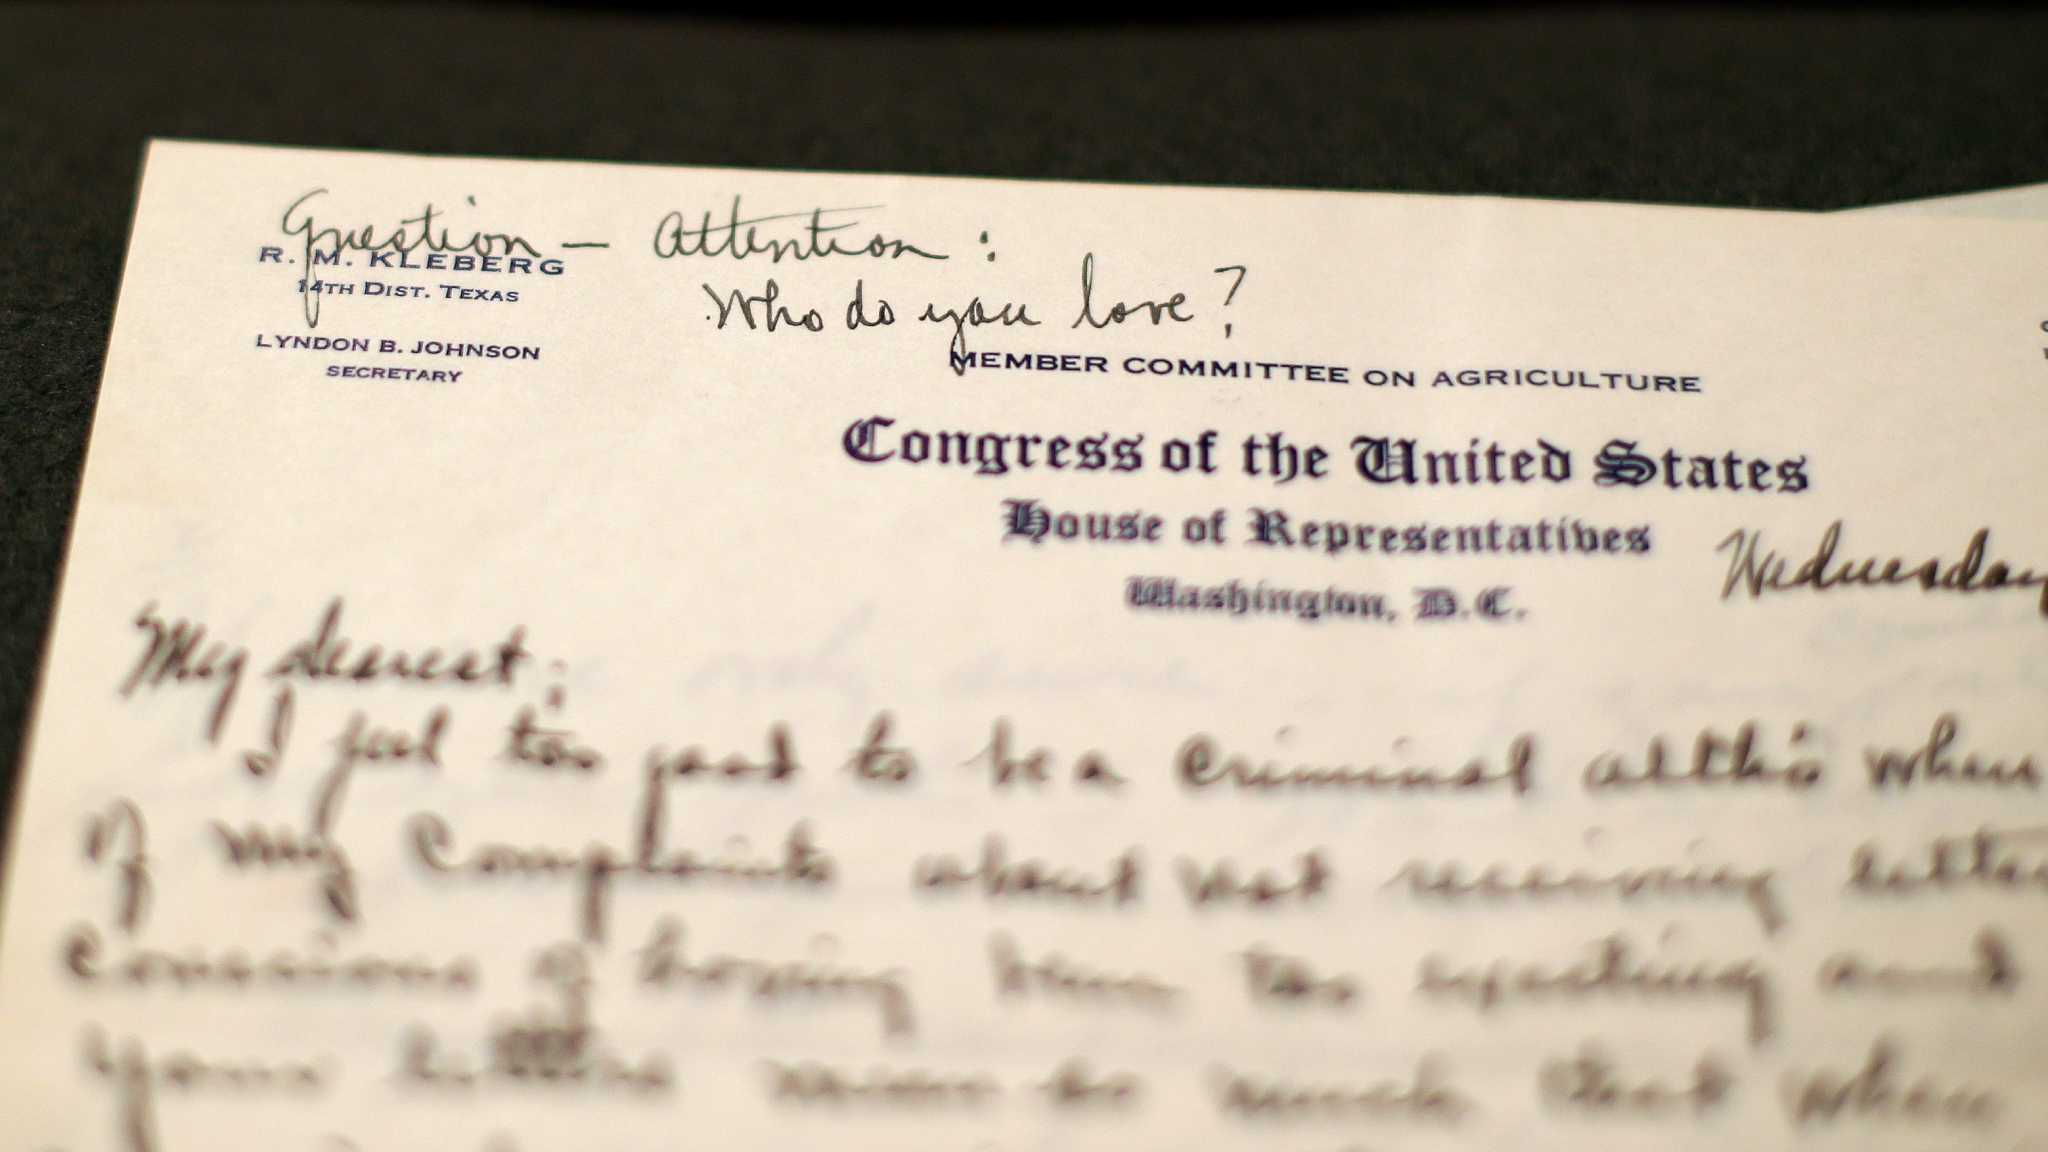 Question — Attention :
R. M. KLEBERG
14TH DIST. TEXAS
Who do you love?
LYNDON B. JOHNSON
SECRETARY
MEMBER COMMITTEE ON AGRICULTURE
Congress of the United States
House of Representatives
Washington, D.C.
Wednesday
My dearest:
I feel too good to be a criminal altho' when
of my complaints about not receiving letters
conscious of having been too exacting and
your letters mean so much that when